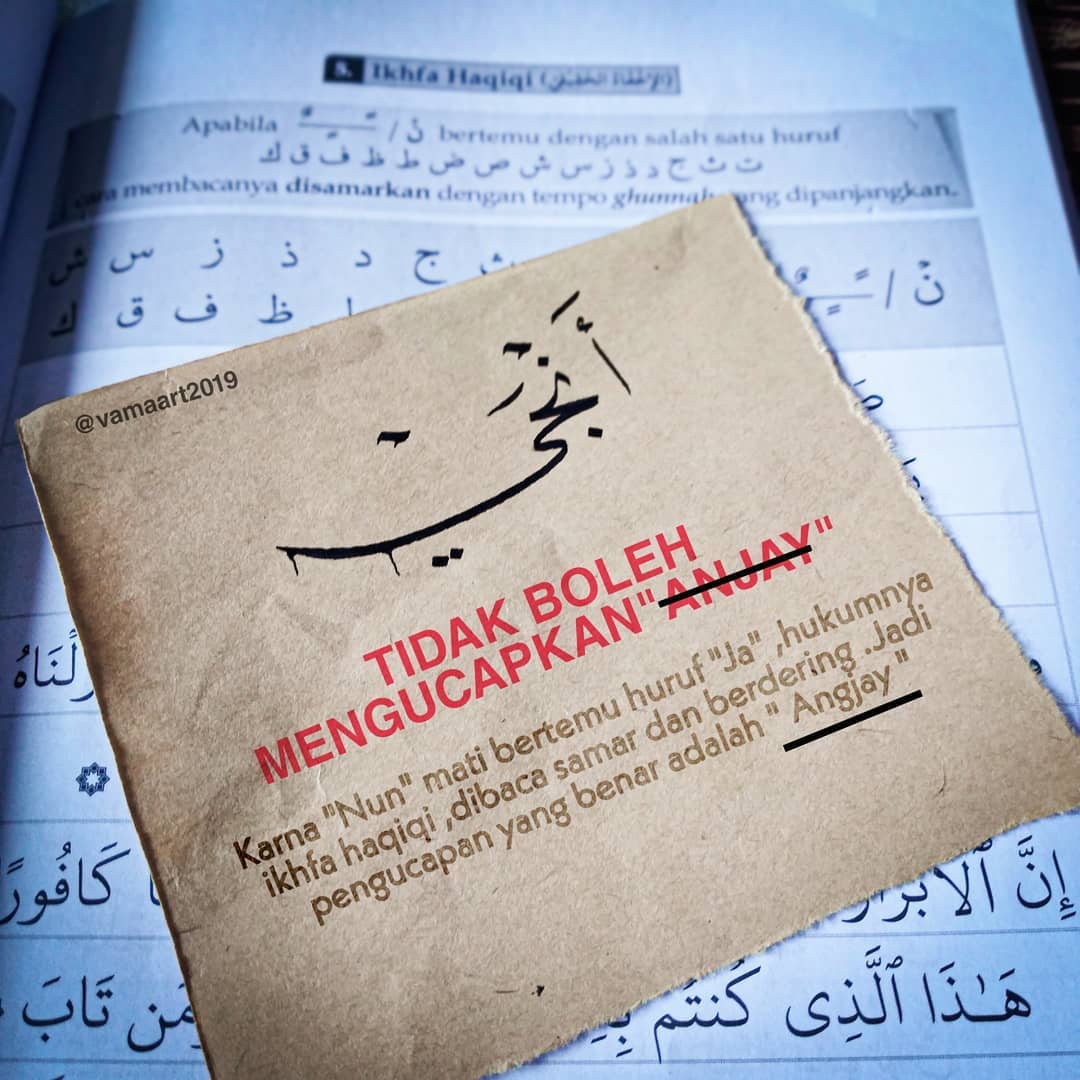 8. Ikhfa Haqiqi (الإخفاء الحقيقي)
Apabila ـًـٍـٌ / نْ bertemu dengan salah satu huruf
ت ث ج د ذ ز س ش ص ض ط ظ ف ق ك
cara membacanya disamarkan dengan tempo ghunnah yang dipanjangkan.
نْ / ـًـٍـٌ ج د ذ ز س ش
ظ ف ق ك
@vamaart2019
أَنْجَيْ
TIDAK BOLEH
MENGUCAPKAN"ANJAY"
Karna "Nun" mati bertemu huruf "Ja" ,hukumnya
ikhfa haqiqi ,dibaca samar dan berdering .Jadi
pengucapan yang benar adalah " Angjay "
إِنَّ ٱلْأَبْرَارَ كَافُورًا
هَـٰذَا ٱلَّذِى كُنتُم مَن تَابَ